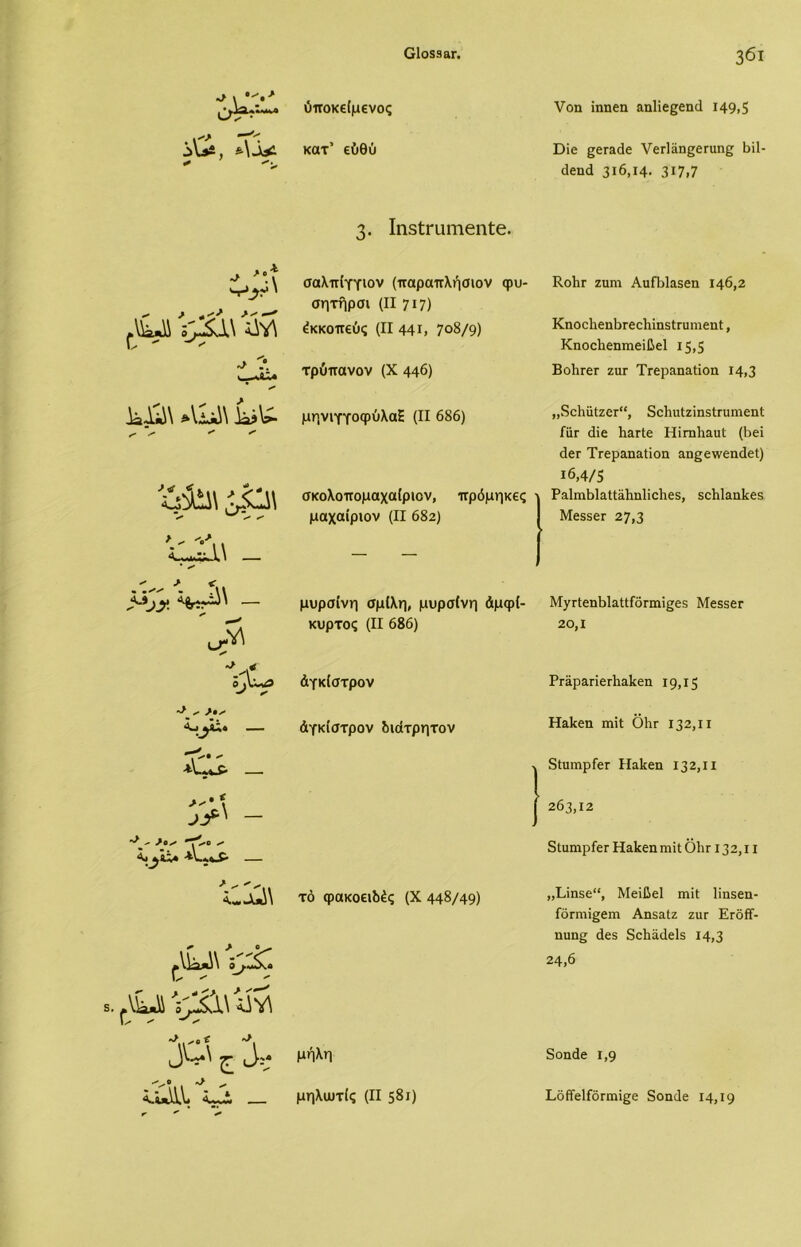 Glossar. 361
مُسْتَبْطِن ὑποκείμενος Von innen anliegend 149,5
κατ’ εὐθύ Die gerade Verlängerung bil-
dend 316,14. 317,7
3. Instrumente.
أُنْبوب σαλπίγγιον (παραπλήσιον φυ- Rohr zum Aufblasen 146,2
σητῆρσι (II 717)
ἐκκοπεύς (II 441, 708/9) Knochenbrechinstrument,
Knochenmeißel 15,5
مِثْقَب τρύπανον (X 446) Bohrer zur Trepanation 14,3
μηνιγγοφύλαξ (II 686) „Schützer“, Schutzinstrument
für die harte Hirnhaut (bei
der Trepanation angewendet)
16,4/5
σκολοπομαχαίριον, πρόμηκες Palmblattähnliches, schlankes
μαχαίριον (II 682) Messer 27,3
— — —
— μυρσίνη σμίλη, μυρσίνη ἀμφί- Myrtenblattförmiges Messer
κυρτος (II 686) 20,1
صِنّارة ἀγκίστρον Präparierhaken 19,15
مَثْقوبة — ἀγκίστρον διάτρητον Haken mit Öhr 132,11
عَمْياء — Stumpfer Haken 132,11
— 263,12
عَمْياء مَثْقوبة — Stumpfer Haken mit Öhr 132,11
العَدَسيّة τὸ φακοειδές (X 448/49) „Linse“, Meißel mit linsen-
förmigem Ansatz zur Eröff-
nung des Schädels 14,3
24,6
s.
ميل ج أَمْيال μήλη Sonde 1,9
— μηλωτίς (II 581) Löffelförmige Sonde 14,19